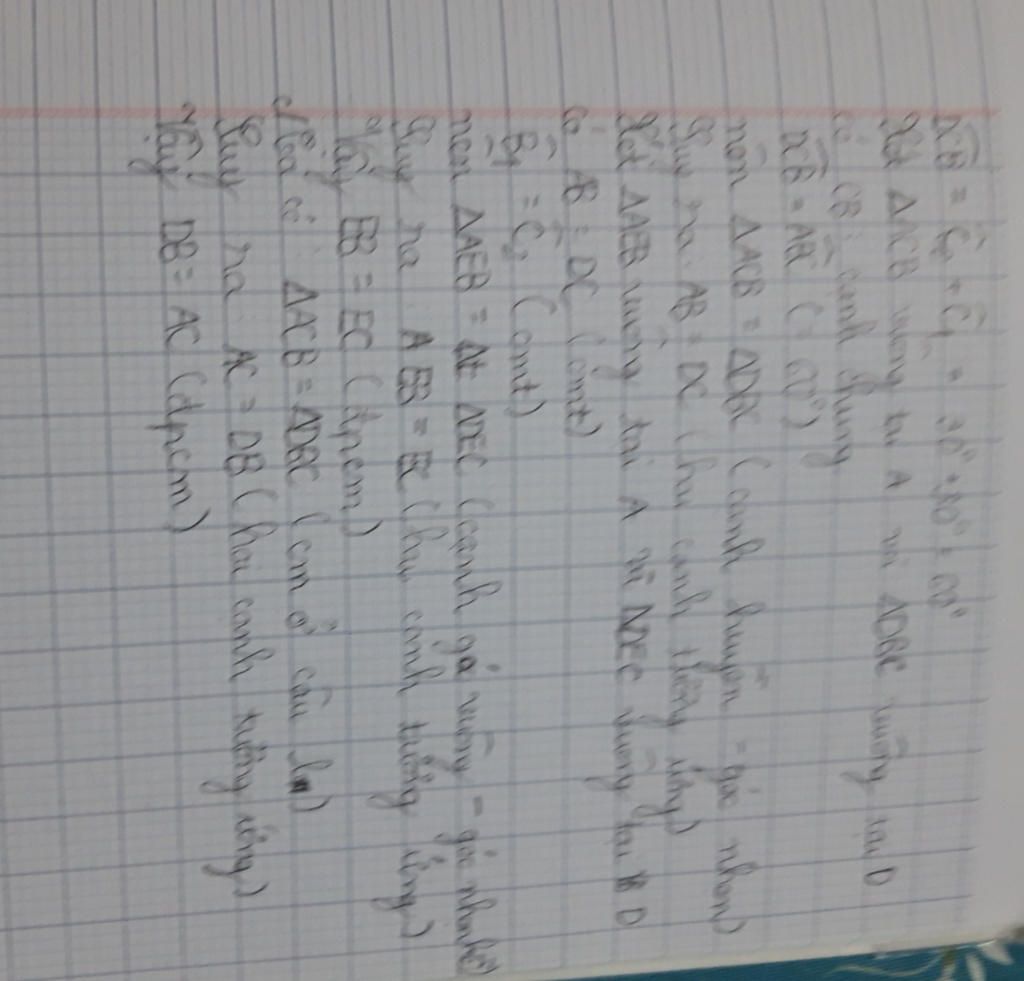 DCB = Ĉ2 + Ĉ1 = 30° + 30° = 60°
Xét ΔACB vuông tại A và ΔDBC vuông tại D
có CB: cạnh chung
DCB = ABC (= 60°)
nên ΔACB = ΔDBC (cạnh huyền - góc nhọn)
Suy ra: AB = DC (hai cạnh tương ứng)
Xét ΔAEB vuông tại A và ΔDEC vuông tại D
Có AB = DC (cmt)
B̂1 = Ĉ2 (cmt)
nên ΔAEB = ΔDEC (cạnh gó vuông - góc nhọn)
Suy ra: EB = EC (hai cạnh tương ứng)
Vậy EB = EC (đpcm)
c/ Ta có: ΔACB = ΔDBC (cm ở câu b)
Suy ra AC = DB (hai cạnh tương ứng)
Vậy DB = AC (đpcm)